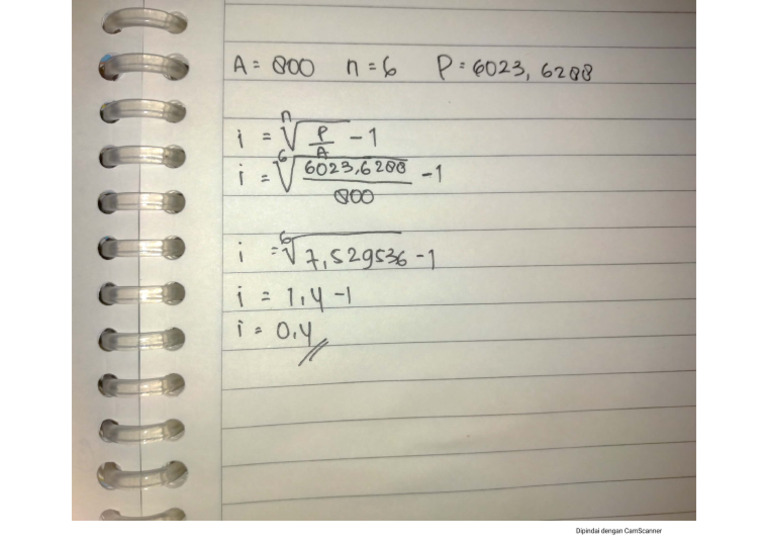 A = 800 n = 6 P = 6023,6288
i = ⁿ√(P/A) - 1
i = ⁶√(6023,6288/800) - 1
i = ⁶√7,529536 - 1
i = 1,4 - 1
i = 0,4 //
Dipindai dengan CamScanner